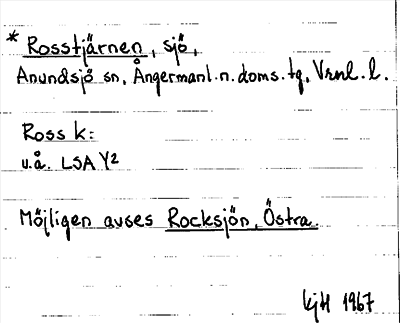 * Rosstjärnen, sjö,
Anundsjö sn, Ångermanl.n.doms.tg, Vrnl.l.
Ross k:
u.å. LSA Y2
Möjligen avses Rocksjön, Östra.
kjH 1967